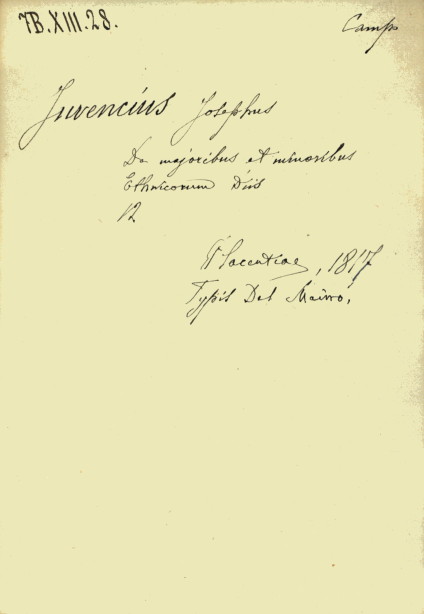 7B.XIII.28.
Camp
Juvencius Josephus
De majoribus et minoribus
Ethnicorum Diis
12
Placentiae, 1817
Typis Del Maino,